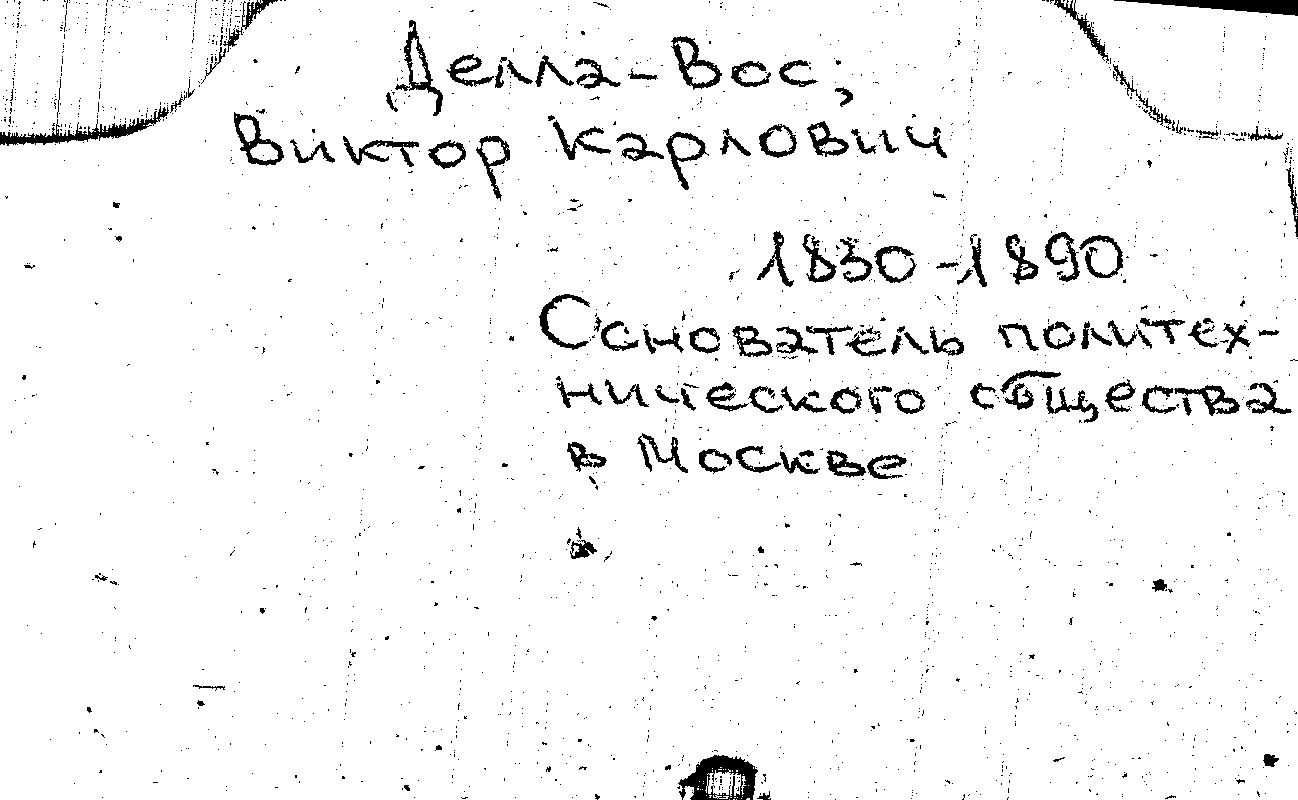 Делла-Вос,
Виктор Карлович
1830-1890
Основатель политех-
нического общества
в Москве